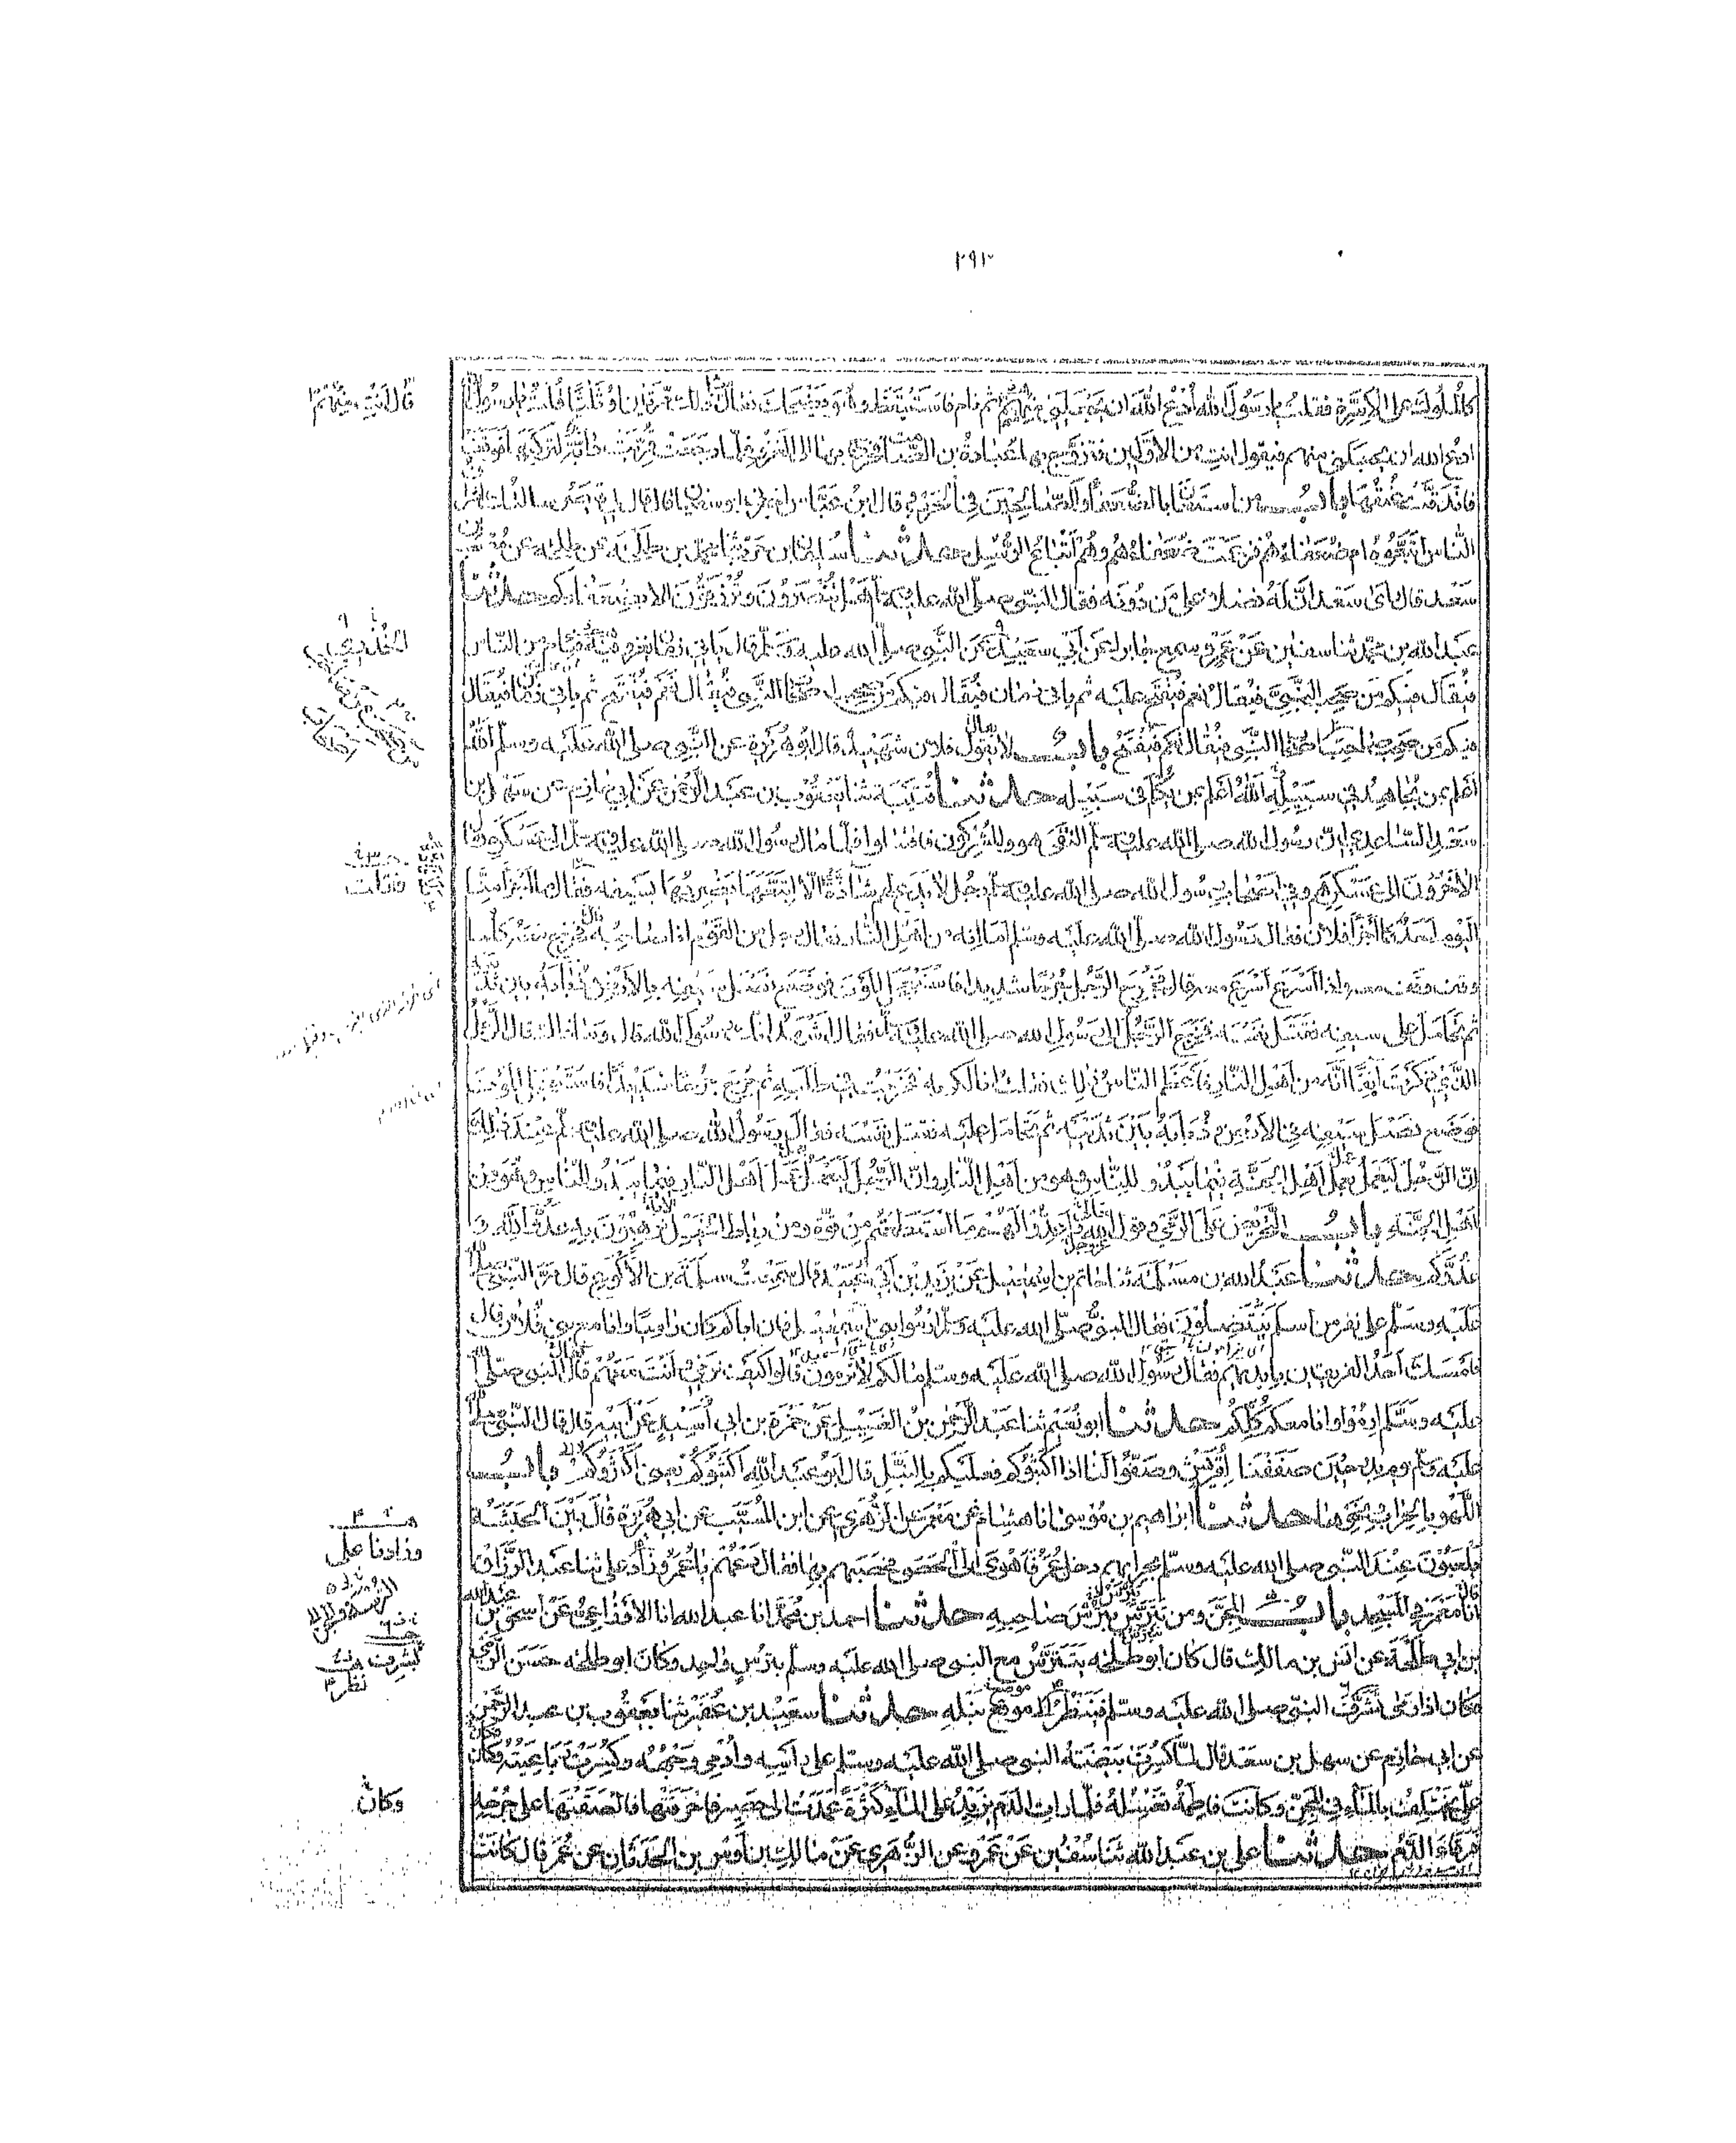 ٢٩٢
كالملوك على الاسرة فقلت يا رسول الله ادع الله ان يجعلني منهم ثم نام فاستيقظ وهو يضحك فقال مثل ذلك مرتين او ثلاثا قلت يا رسول
ادع الله ان يجعلني منهم فيقول انت من الاولين فتزوج بها عبادة بن الصامت فخرج بها الى الغزو فلما رجعت قربت دابة لتركبها فوقعت
فاندقت عنقها باب من استعان بالضعفاء والصالحين في الحرب وقال ابن عباس اخبرني ابو سفيان قال قال لي قيصر سالتك اشراف
الناس اتبعوه ام ضعفاءهم فزعمت ضعفاءهم وهم اتباع الرسل حدثنا سليمان بن حرب ثنا محمد بن طلحة عن طلحة عن مصعب بن
سعد قال راى سعد ان له فضلا على من دونه فقال النبي صلى الله عليه وسلم هل تنصرون وترزقون الا بضعفائكم حدثنا
عبد الله بن محمد ثنا سفين عن عمرو سمع جابرا عن ابي سعيد عن النبي صلى الله عليه وسلم قال ياتي زمان يغزو فيه فئام من الناس
فيقال فيكم من صحب النبي فيقال نعم فيفتح عليه ثم ياتي زمان فيقال فيكم من صحب اصحاب النبي فيقال نعم فيفتح ثم ياتي زمان فيقال
فيكم من صحب صاحب اصحاب النبي فيقال نعم فيفتح باب لا يقال فلان شهيد قال ابو هريرة عن النبي صلى الله عليه وسلم الله
اعلم بمن يجاهد في سبيله الله اعلم بمن يكلم في سبيله حدثنا قتيبة ثنا يعقوب بن عبد الرحمن عن ابي حازم عن سهل بن
سعد الساعدي ان رسول الله صلى الله عليه وسلم التقى هو والمشركون فاقتتلوا فلما مال رسول الله صلى الله عليه وسلم الى عسكره ومال
الاخرون الى عسكرهم وفي اصحاب رسول الله صلى الله عليه وسلم رجل لا يدع لهم شاذة الا اتبعها يضربها بسيفه فقال ما اجزا منا
اليوم احد كما اجزا فلان فقال رسول الله صلى الله عليه وسلم اما انه من اهل النار فقال رجل من القوم انا صاحبه قال فخرج معه كلما
وقف وقف معه واذا اسرع اسرع معه قال فجرح الرجل جرحا شديدا فاستعجل الموت فوضع نصل سيفه بالارض وذبابه بين ثدييه
ثم تحامل على سيفه فقتل نفسه فخرج الرجل الى رسول الله صلى الله عليه وسلم فقال اشهد انك رسول الله قال وما ذاك قال الرجل
الذي ذكرت انفا انه من اهل النار فاعظم الناس ذلك فقلت انا لكم به فخرجت في طلبه ثم جرح جرحا شديدا فاستعجل الموت
فوضع نصل سيفه في الارض وذبابه بين ثدييه ثم تحامل عليه فقتل نفسه فقال رسول الله صلى الله عليه وسلم عند ذلك
ان الرجل ليعمل عمل اهل الجنة فيما يبدو للناس وهو من اهل النار وان الرجل ليعمل عمل اهل النار فيما يبدو للناس وهو من
اهل الجنة باب التحريض على الرمي وقول الله واعدوا لهم ما استطعتم من قوة ومن رباط الخيل ترهبون به عدو الله و
عدوكم حدثنا عبد الله بن مسلمة ثنا حاتم بن اسمعيل عن يزيد بن ابي عبيد قال سمعت سلمة بن الاكوع قال مر النبي صلى الله
عليه وسلم على نفر من اسلم ينتضلون فقال النبي صلى الله عليه وسلم ارموا بني اسمعيل فان اباكم كان راميا وانا مع بني فلان قال
فامسك احد الفريقين بايديهم فقال رسول الله صلى الله عليه وسلم ما لكم لا ترمون قالوا كيف نرمي وانت معهم فقال النبي صلى الله
عليه وسلم ارموا وانا معكم كلكم حدثنا ابو نعيم ثنا عبد الرحمن بن الغسيل عن حمزة بن ابي اسيد عن ابيه قال قال النبي صلى الله
عليه وسلم يوم بدر حين صففنا لقريش وصفوا لنا اذا اكثبوكم فعليكم بالنبل قال ابو عبد الله اكثبوكم يعني اكثروكم باب
اللهو بالحراب ونحوها حدثنا ابراهيم بن موسى انا هشام عن معمر عن الزهري عن ابن المسيب عن ابي هريرة قال بين الحبشة
يلعبون عند النبي صلى الله عليه وسلم بحرابهم دخل عمر فاهوى الى الحصى فحصبهم بها فقال دعهم يا عمر وزاد علي ثنا عبد الرزاق
انا معمر في المسجد باب المجن ومن يتترس بترس صاحبه حدثنا احمد بن محمد انا عبد الله انا الاوزاعي عن اسحق بن عبد الله
بن ابي طلحة عن انس بن مالك قال كان ابو طلحة يتترس مع النبي صلى الله عليه وسلم بترس واحد وكان ابو طلحة حسن الرمي
فكان اذا رمى تشرف النبي صلى الله عليه وسلم فينظر الى موضع نبله حدثنا سعيد بن عفير ثنا يعقوب بن عبد الرحمن
عن ابي حازم عن سهل بن سعد قال لما كسرت بيضة النبي صلى الله عليه وسلم على راسه وادمي وجهه وكسرت رباعيته وكان
علي يختلف بالماء في المجن وكانت فاطمة تغسله فلما رات الدم يزيد على الماء كثرة عمدت الى حصير فاحرقتها فالصقتها على جرحه
فرقا الدم حدثنا علي بن عبد الله ثنا سفين عن عمرو عن الزهري عن مالك بن اوس بن الحدثان عن عمر قال كانت
قال انت منهم
الخدري
فقلت
وزادنا علي
يشرف
نظر
وكان